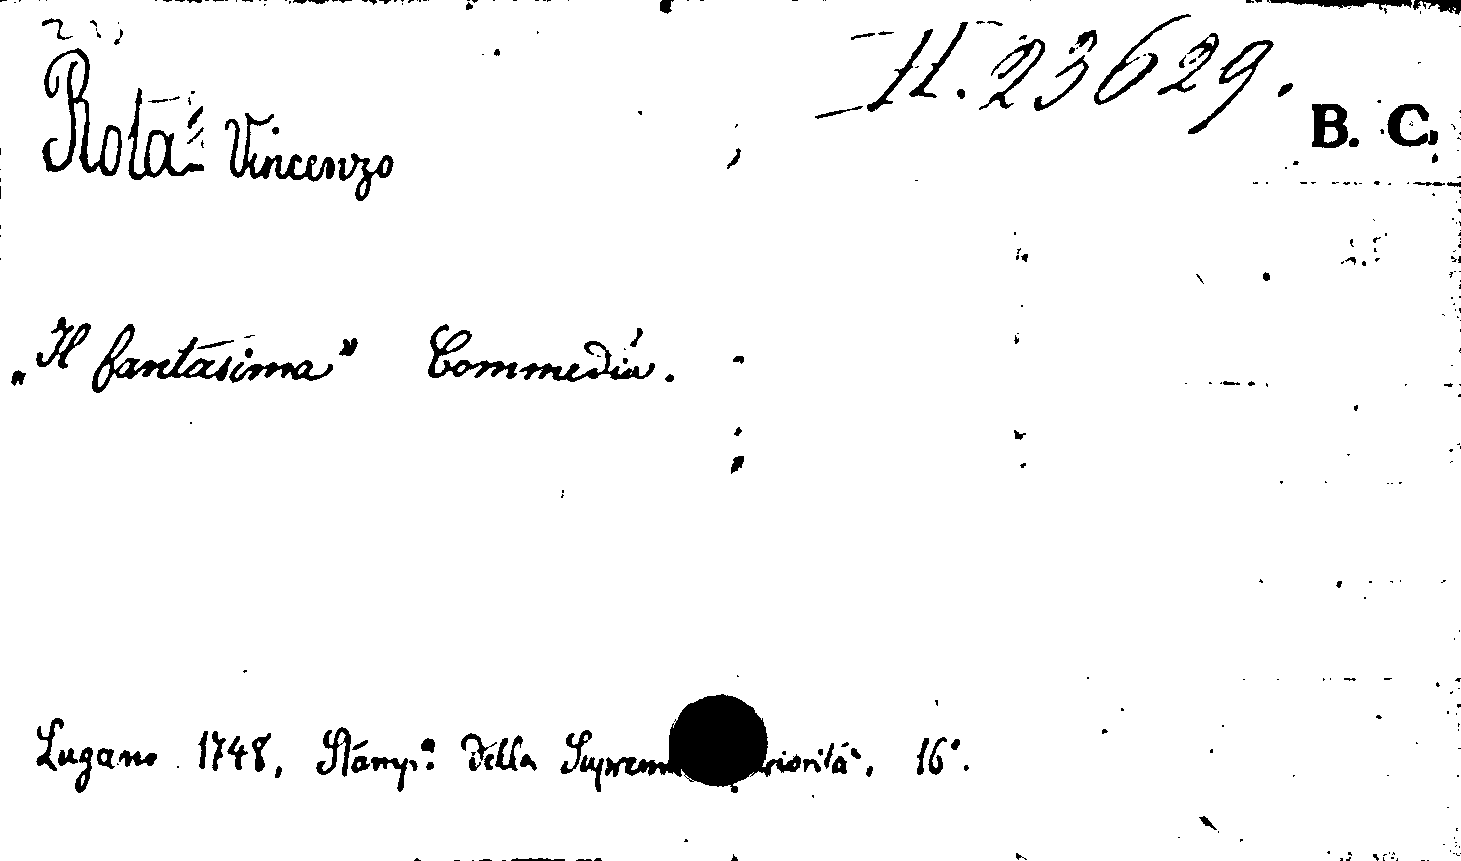 H. 23629.
B. C.
Rota Vincenzo
„Il fantasima” Commedia.
Lugano 1748, Stamp.ª della Suprem riorità, 16°.